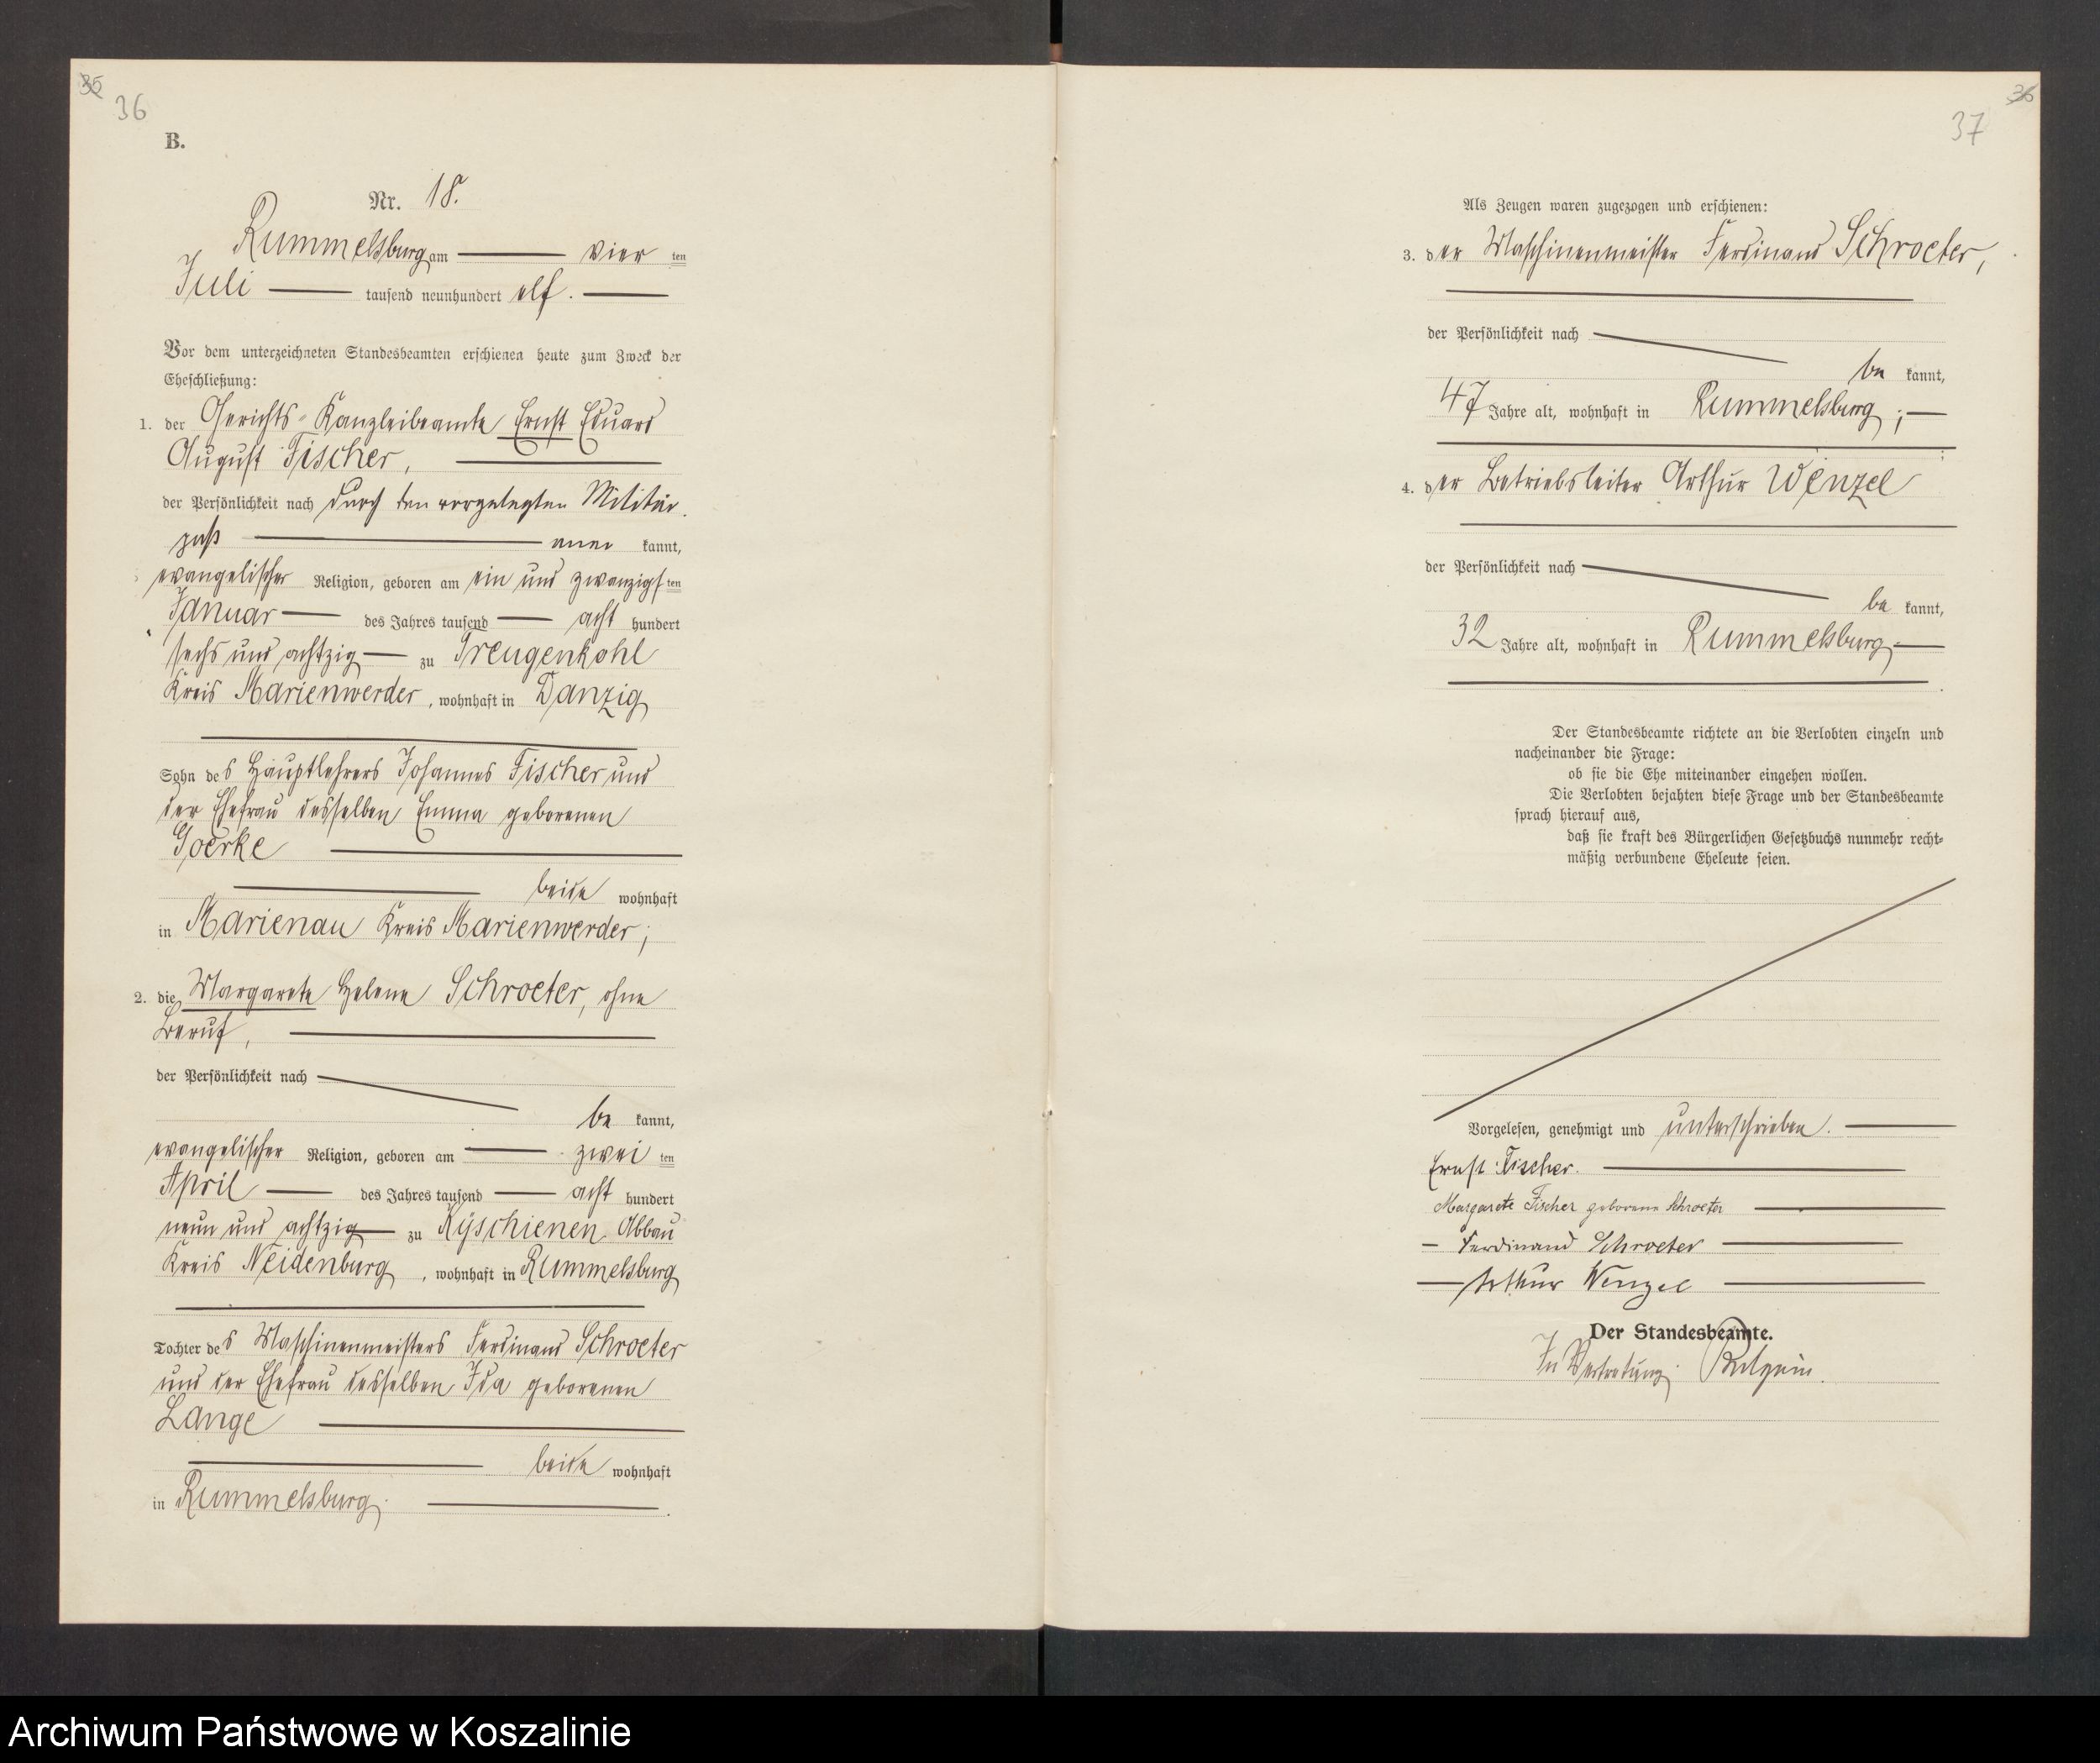 35
36
B.
Nr. 18.
Rummelsburg am vier ten
Juli tausend neunhundert elf.
Vor dem unterzeichneten Standesbeamten erschienen heute zum Zweck der
Eheschließung:
1. der Gerichts-Kanzleibeamte Ernst Eduard
August Fischer,
der Persönlichkeit nach durch den vorgelegten Militär-
paß aner kannt,
evangelischer Religion, geboren am ein und zwanzigsten
Januar des Jahres tausend acht hundert
sechs und achtzig zu Treugenkohl
Kreis Marienwerder, wohnhaft in Danzig
Sohn des Hauptlehrers Johannes Fischer und
der Ehefrau desselben Emma geborenen
Goerke
beide wohnhaft
in Marienau Kreis Marienwerder;
2. die Margarete Helene Schroeter, ohne
Beruf,
der Persönlichkeit nach
be kannt,
evangelischer Religion, geboren am zwei ten
April des Jahres tausend acht hundert
neun und achtzig zu Kyschienen Abbau
Kreis Neidenburg, wohnhaft in Rummelsburg
Tochter des Maschinenmeisters Ferdinand Schroeter
und der Ehefrau desselben Ida geborenen
Lange
beide wohnhaft
in Rummelsburg.
36
37
Als Zeugen waren zugezogen und erschienen:
3. der Maschinenmeister Ferdinand Schroeter,
der Persönlichkeit nach
be kannt,
47 Jahre alt, wohnhaft in Rummelsburg;
4. der Betriebsleiter Arthur Wenzel
der Persönlichkeit nach
be kannt,
32 Jahre alt, wohnhaft in Rummelsburg
Der Standesbeamte richtete an die Verlobten einzeln und
nacheinander die Frage:
ob sie die Ehe miteinander eingehen wollen.
Die Verlobten bejahten diese Frage und der Standesbeamte
sprach hierauf aus,
daß sie kraft des Bürgerlichen Gesetzbuchs nunmehr recht-
mäßig verbundene Eheleute seien.
Vorgelesen, genehmigt und unterschrieben.
Ernst Fischer.
Margarete Fischer geborene Schroeter
Ferdinand Schroeter
Arthur Wenzel
Der Standesbeamte.
In Vertretung:
Archiwum Państwowe w Koszalinie